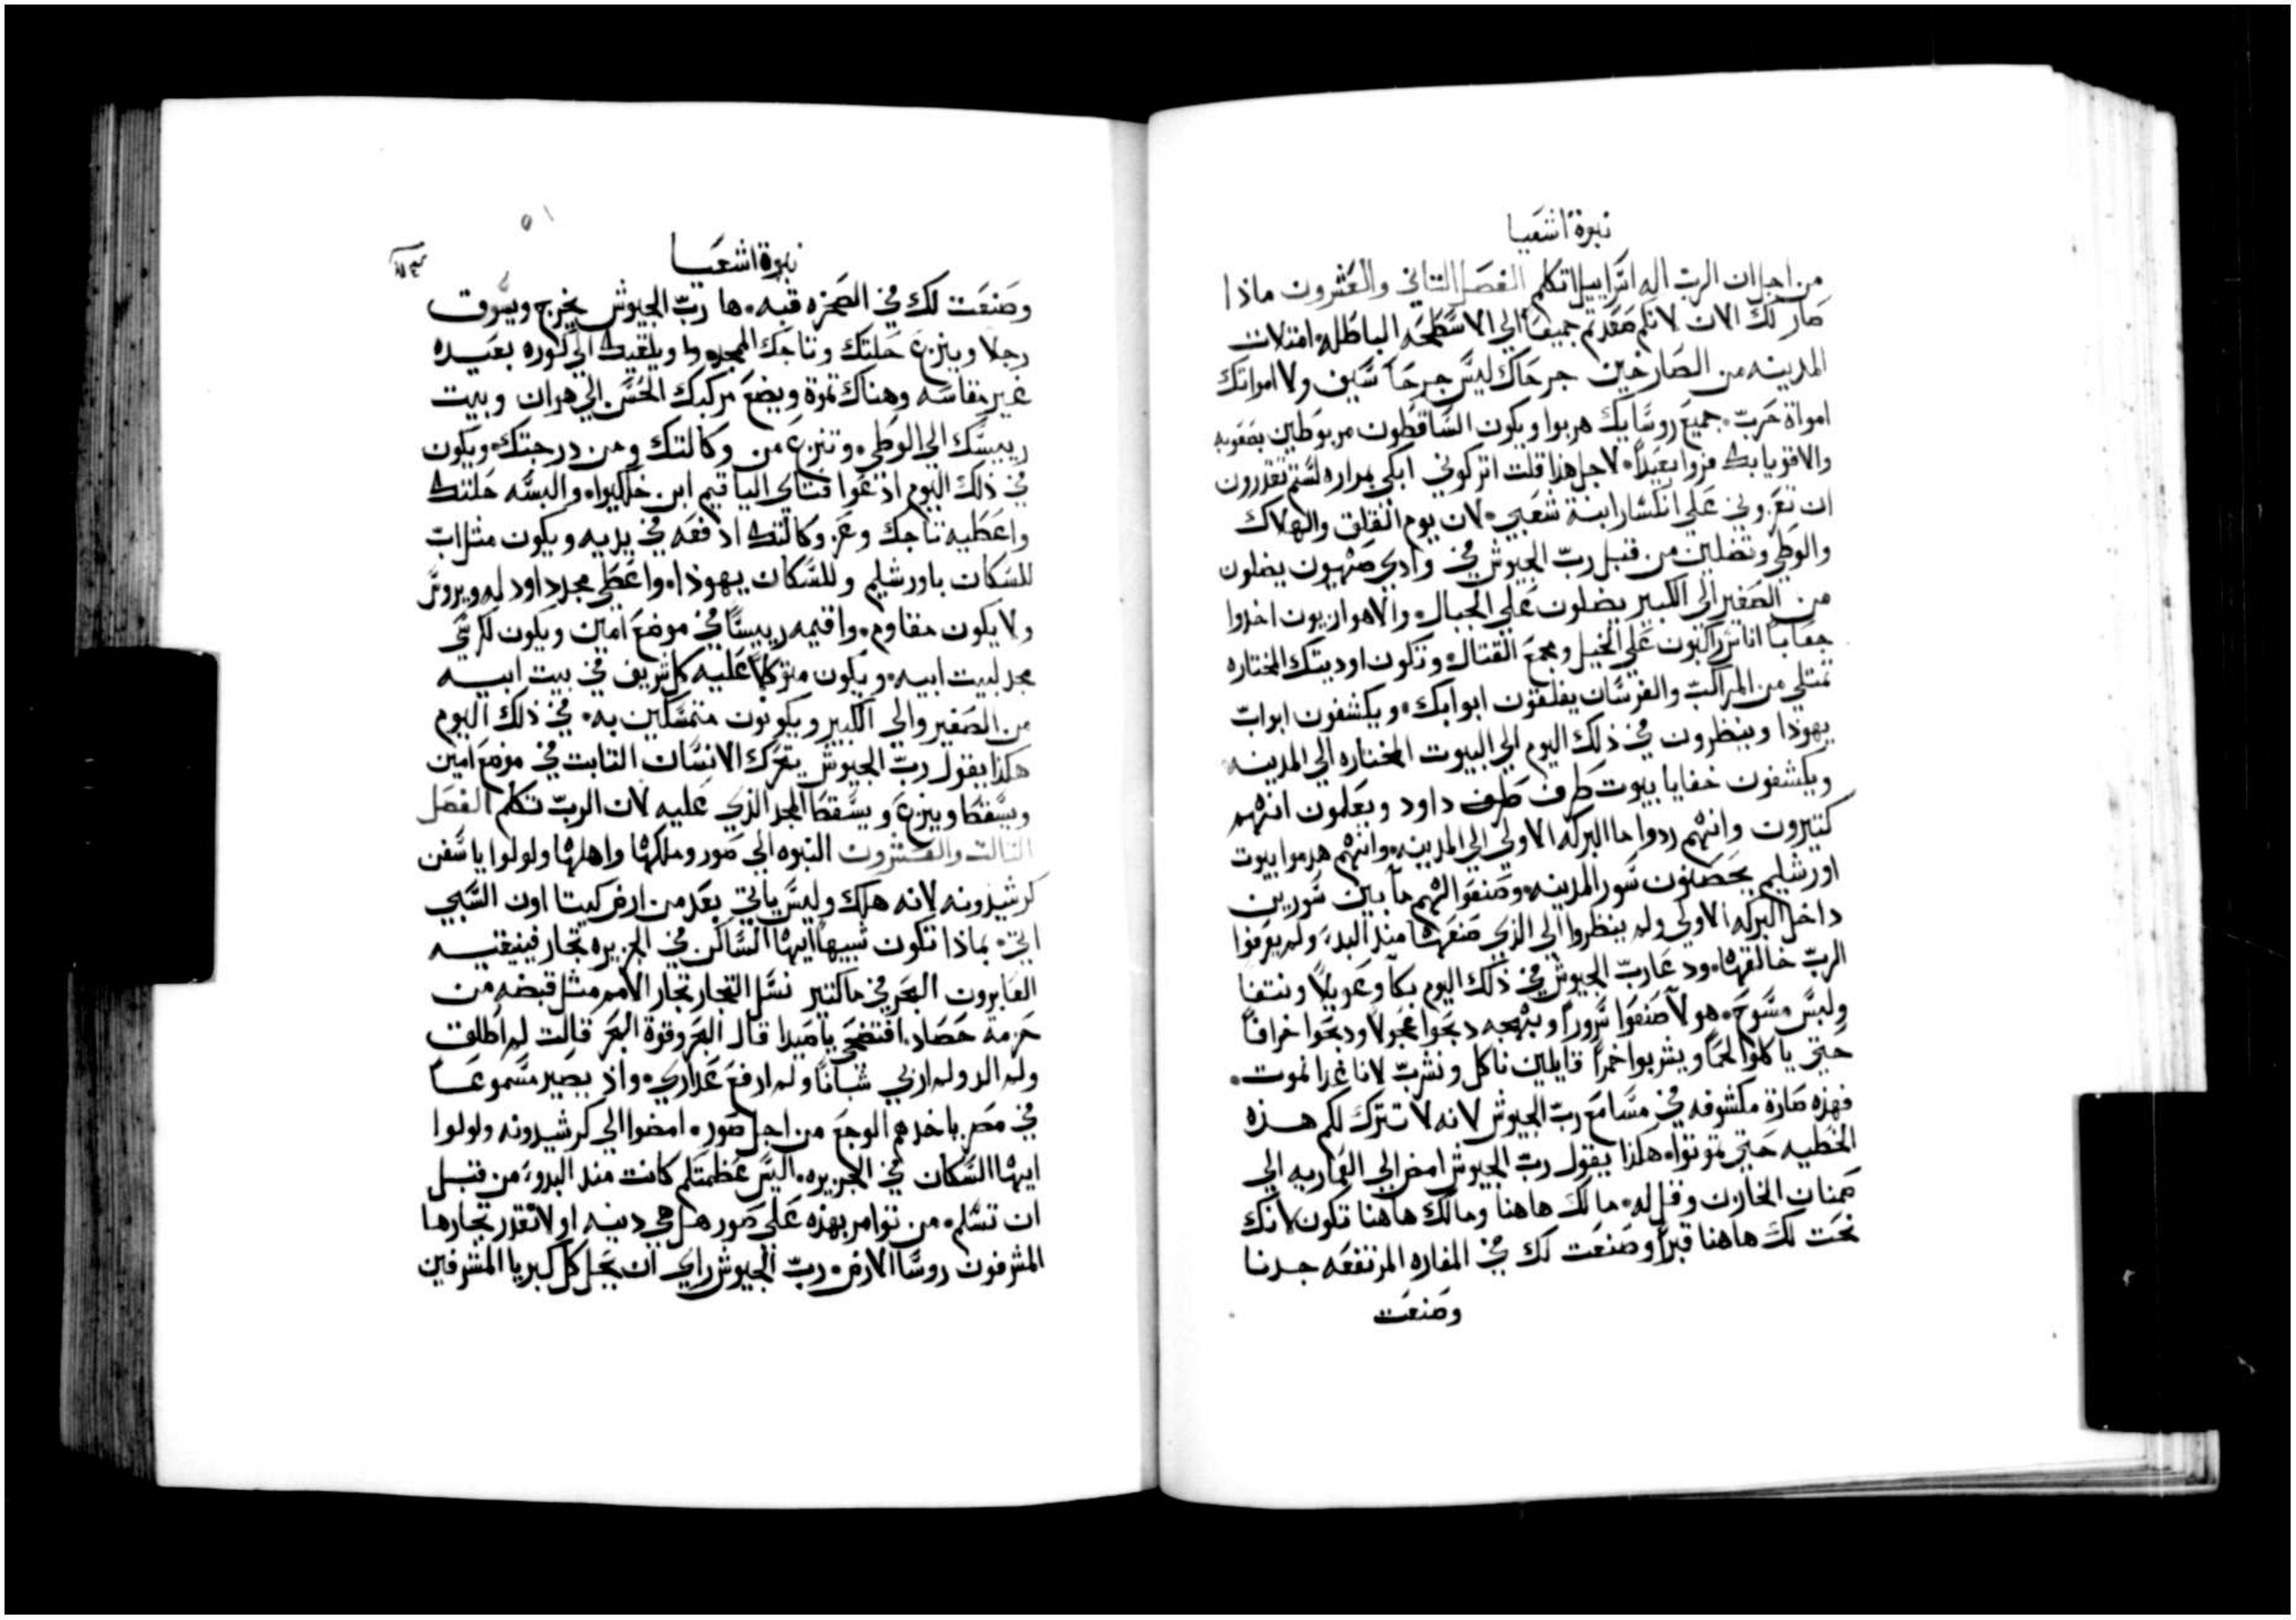 نبوة اشعيا
من اجل ان الرب اله اسراييل تكلم الفصل التاني والعشرون ماذا
صار لك الان لانكم صعدتم جميعا الي الاسطحه الباطله امتلات
المدينه من الصارخين جرحاك ليس جرحا سيف ولا امواتك
امواة حرب جميع روسايك هربوا ويكون الساقطون مربوطين بصعوبه
والاقويا بك فروا بعيدا لاجل هذا قلت اتركوني ابكي بمراره لستم تقدرون
ان تعزوني علي انكسار ابنة شعبي لان يوم القلق والهلاك
والوطي وتضلين من قبل رب الجيوش في وادي صهيون يضلون
من الصغير الي الكبير يضلون علي الجبال والاهوازيون اخدوا
جعابا اناس راكبون علي الخيل ومجمع القتال وتكون اوديتك المختاره
تمتلي من المراكب والفرسان يغلقون ابوابك ويكشفون ابواب
يهوذا وينظرون في ذلك اليوم الي البيوت المختاره الي المدينه
ويكشفون خفايا بيوت طرف طرف داود ويعلمون انهم
كتيرون وانهم ردوا ما البركه الاولي الي المدينه وانهم هدموا بيوت
اورشليم يحصنون سور المدينه وصنعوا لهم ما بين سورين
داخل البركه الاولي ولم ينظروا الي الذي صنعها مند البدء ولم يعرفوا
الرب خالقها ودعا رب الجيوش في ذلك اليوم بكا وعويلا ونتفا
ولبس مسوح هولا صنعوا سرورا وبهجه دبحوا عجولا ودبحوا خرافا
حتي ياكلوا لحما ويشربوا خمرا قايلين ناكل ونشرب لانا غدا نموت
فهذه صارة مكشوفه في مسامع رب الجيوش لانه لا تترك لكم هذه
الخطيه حتي تموتوا هكذا يقول رب الجيوش امض الي القماريه الي
صمنان الخازن وقل له ما لك هاهنا وما لك هاهنا تكون لانك
نحت لك هاهنا قبرا وصنعت لك في المغاره المرتفعه جدنا
وصنعت
نبوة اشعيا
وصنعت لك في الصخره قبه ها رب الجيوش يخرج ويسوق
رجلا وينزع حلتك وتاجك الممجد ويلقيك الي كوره بعيده
غير مقاسه وهناك تموة ويضع مركبك الحسن الي هوان وبيت
رييسك الي الوطي وتنزع من وكالتك ومن درجتك ويكون
في ذلك اليوم ادعوا فتاي الياقيم ابن خلكيوا والبسه حلتك
واعطيه تاجك وعز وكالتك ادفعه في يديه ويكون متل اب
للسكان باورشليم وللسكان يهوذا واعطي مجد داود له ويروس
ولا يكون مقاوم واقيمه رييسا في موضع امين ويكون لكرسي
مجد لبيت ابيه ويكون متوكلا عليه كل شريف في بيت ابيه
من الصغير والي الكبير ويكونون متمسكين به في ذلك اليوم
هكذا يقول رب الجيوش يتحرك الانسان التابت في موضع امين
ويسقط وينزع ويسقط المجد الذي عليه لان الرب تكلم الفصل
التالت والعشرون النبوه الي صور وملكها واهلها ولولوا يا سفن
كرشيدونه لانه هلك وليس ياتي بعد من ارض كيتا اون السبي
اتي بماذا تكون شبيها ايها الساكن في الجزيره تجار فينيقيه
العابرون البحر في ما كتير نسل التجار تجار الامم متل قبضه من
حزمة حصاد افتضحي يا صيدا قال البحر وقوة البحر قالت لم اطلق
ولم الد ولم اربي شبانا ولم ارفع عداري واذ يصير مسموعا
في مصر ياخدهم الوجع من اجل صور امضوا الي كرشيدونه ولولوا
ايها السكان في الجزيره اليس عظمتكم كانت مند البدو من قبل
ان تسلم من توامر بهذه علي صور هل هي دنيه او لا تقدر تجارها
المشرفون روسا الارض رب الجيوش راي ان يحل كل كبريا المشرفين